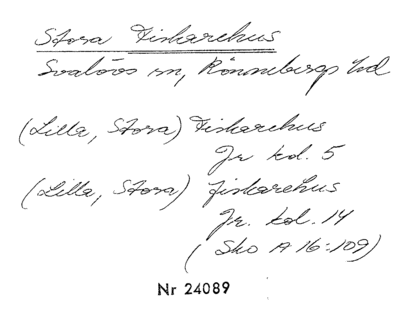 Stora Fiskarehus
Svalövs sn, Rönnebergs hd
(Lilla, Stora) Fiskarehus
Jr kol. 5
(Lilla, Stora) Fiskarehus
Jr. kol. 14
(Sko A 16:109)
Nr 24089